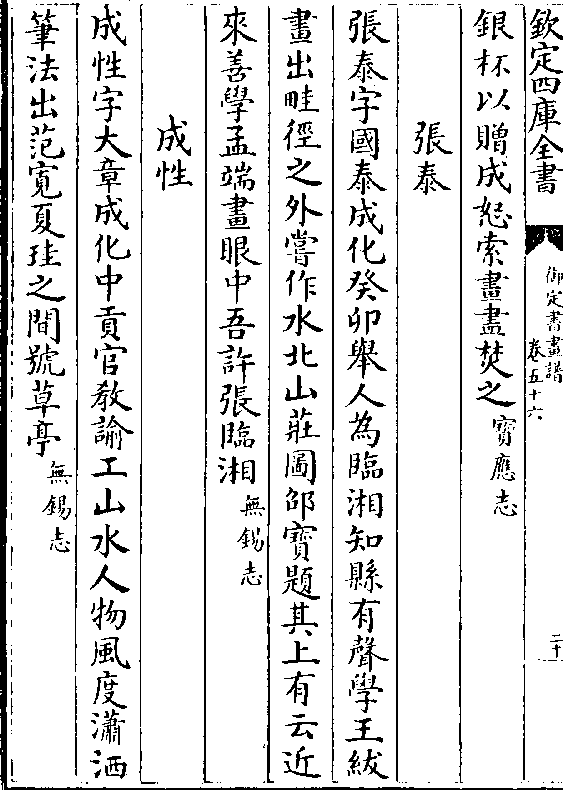 欽定四庫全書
御定書畫譜
卷五十六
二十
銀杯以贈成恕索畫盡焚之寶應志
張泰
張泰字國泰成化癸卯舉人為臨湘知縣有聲學王紱
畫出畦徑之外嘗作水北山莊圖邵寶題其上有云近
來善學孟端畫眼中吾許張臨湘無錫志
成性
成性字大章成化中貢官教諭工山水人物風度瀟洒
筆法出范寬夏珪之間號草亭無錫志